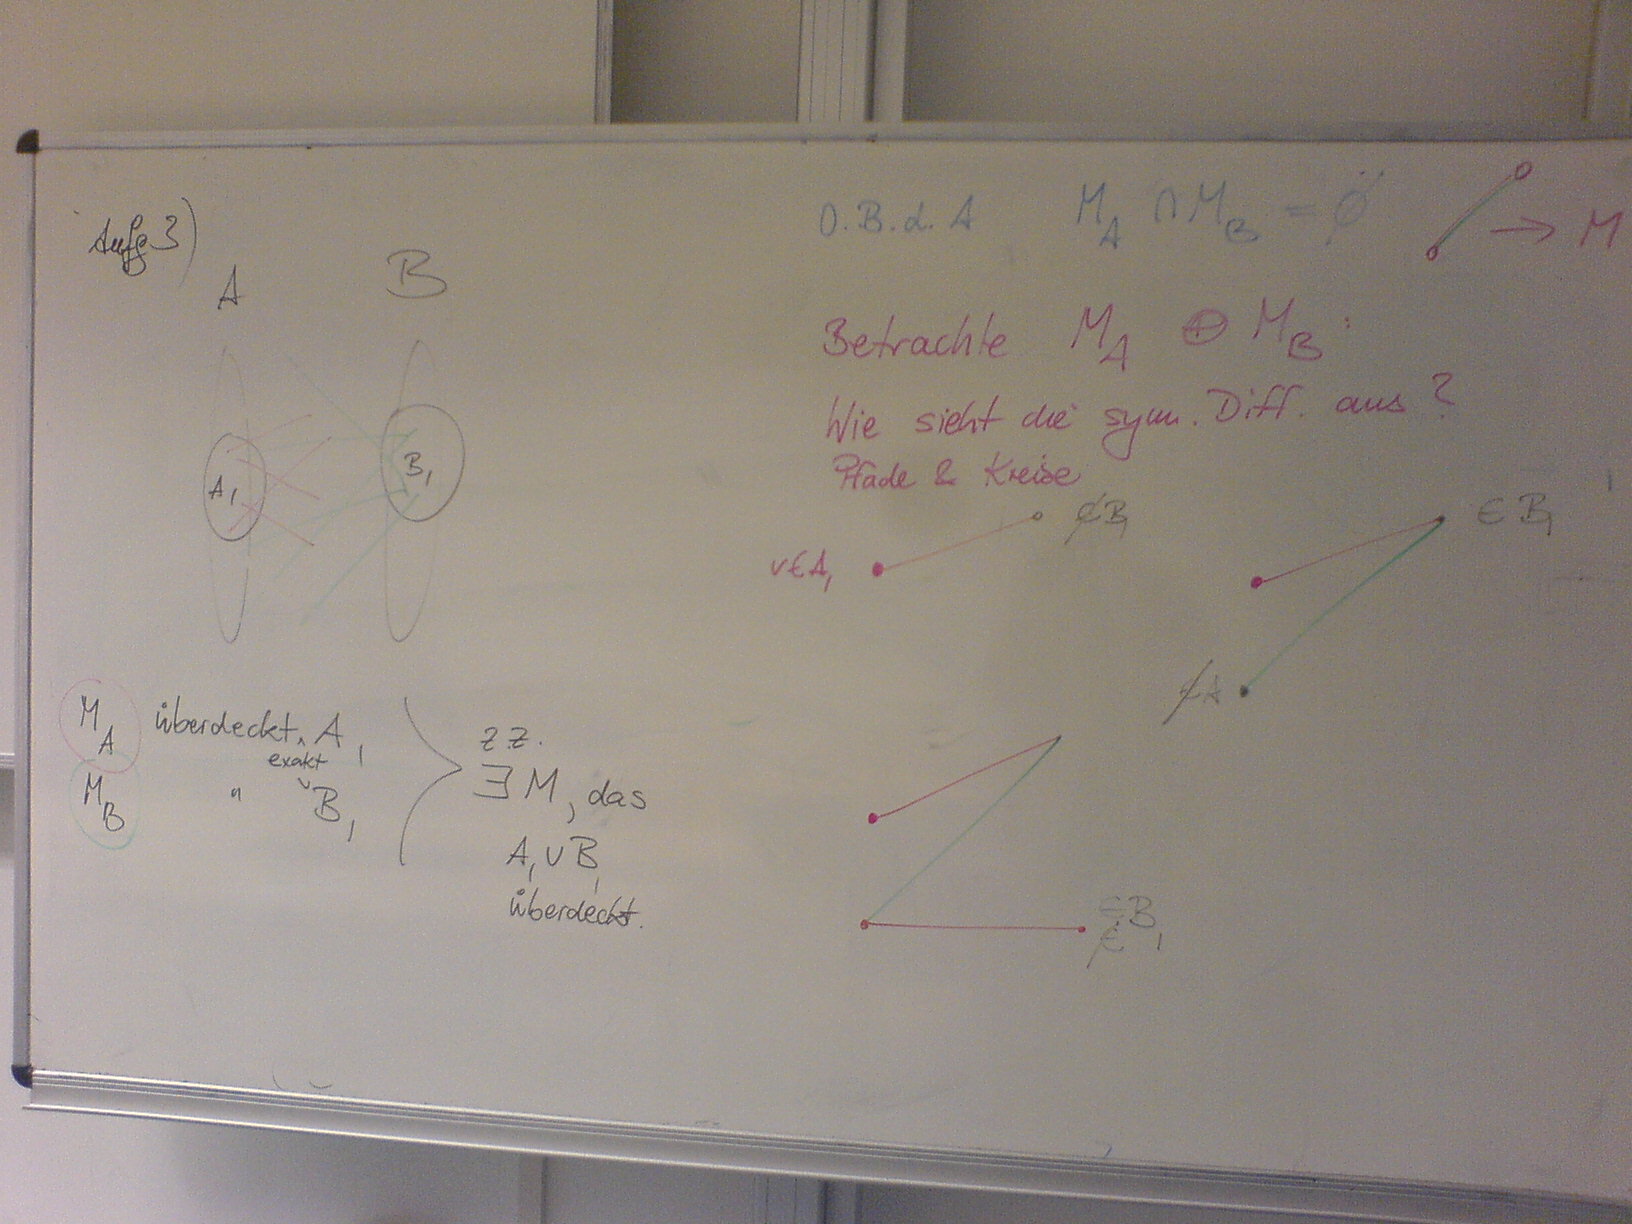 Aufg 3)
A B
A₁ B₁
M_A überdeckt A₁
exakt
M_B " B₁
z.z.
∃ M, das
A₁ ∪ B₁
überdeckt.
O.B.d.A M_A ∩ M_B = ∅
→ M
Betrachte M_A ⊕ M_B:
Wie sieht die symm. Diff. aus?
Pfade & Kreise
v∈A₁ ∉B₁
∈ B₁
∉A
∈B₁
∉